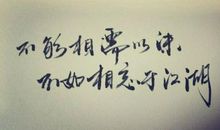 不能相需以沫,
不如相忘于江湖